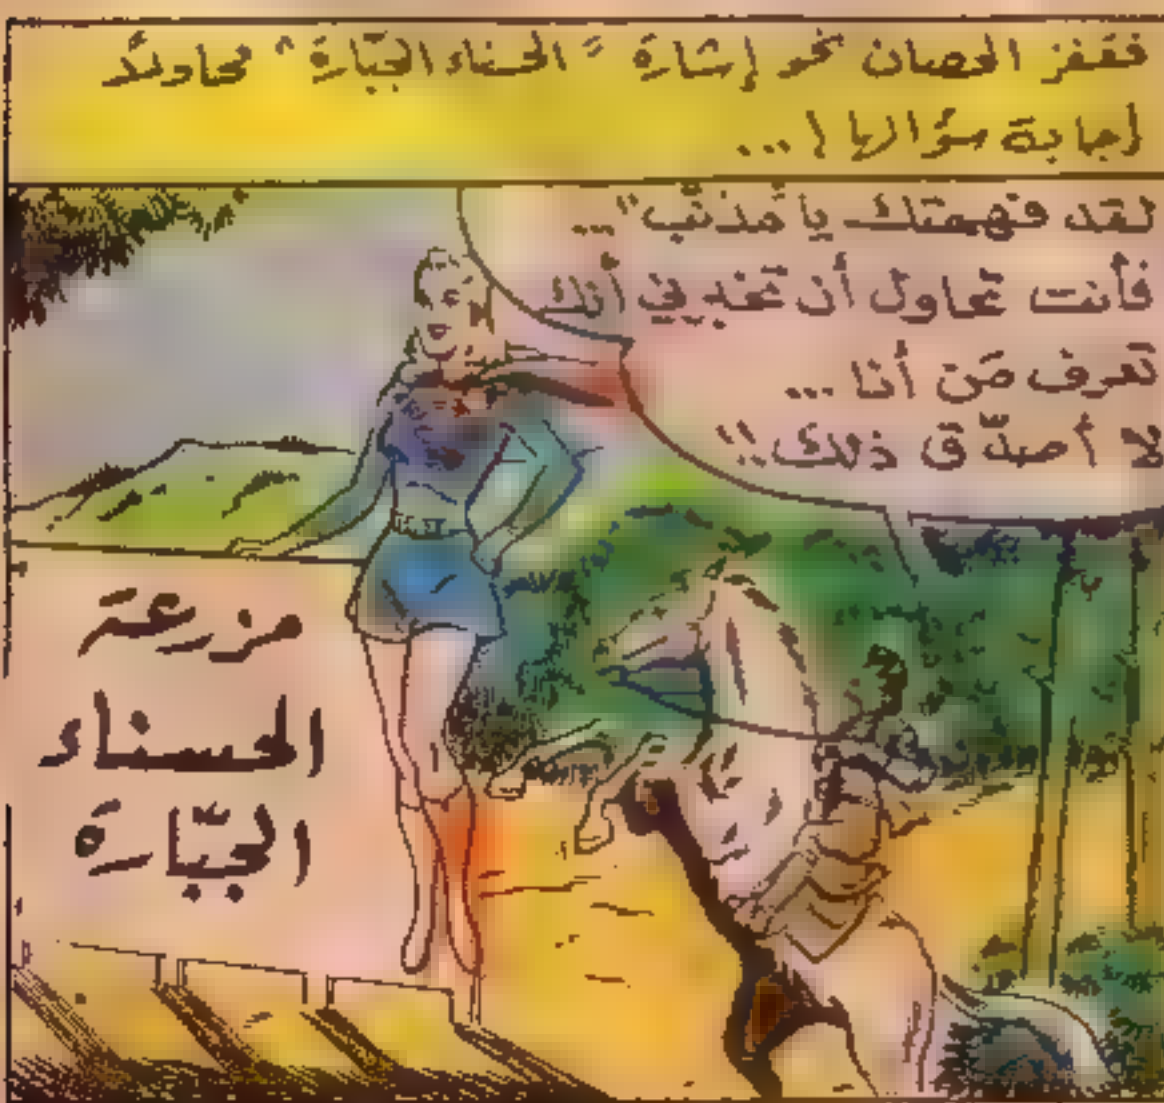 فقفز الحصان نحو إشارة "الحسناء الجبّارة" محاولاً
إجابة سؤالها !...
لقد فهمتك يا "مذنّب"...
فأنت تحاول أن تخبرني أنك
تعرف مَن أنا ...
لا أصدّق ذلك!!
مزرعة
الحسناء
الجبّارة